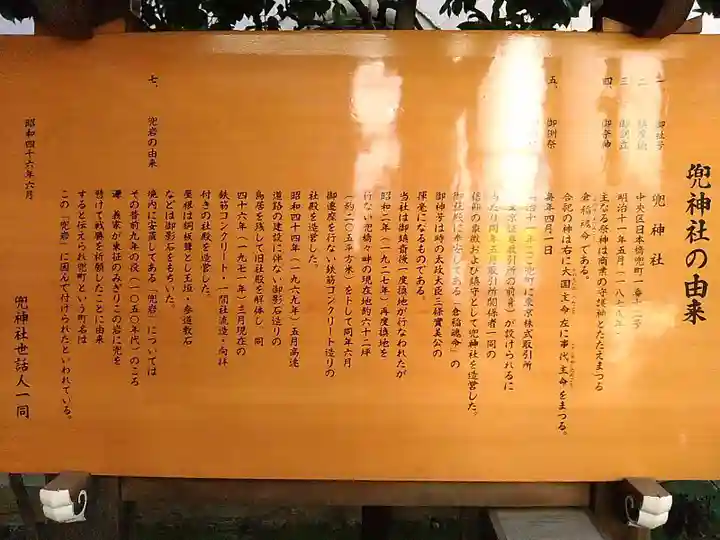 兜神社の由来
一 御社号 兜神社
二 鎮座地 中央区日本橋兜町一番十二号
三 御創立 明治十一年五月(一八七八年)
四、御祭神 主なる祭神は商業の守護神とたたえまつる
倉稲魂命である。
合祀の神は右に大国主命 左に事代主命をまつる。
五、御例祭 毎年四月一日
明治十一年ここ兜町に東京株式取引所
(東京証券取引所の前身)が設けられるに
当たり同年五月取引所関係者一同の
信仰の象徴および鎮守として兜神社を造営した。
御社殿に奉安してある「倉稲魂命」の
御神号は時の太政大臣三條實美公の
揮毫になるものである。
当社は御鎮斎後一度換地が行なわれたが
昭和二年(一九二七年)再度換地を
行ない兜橋々畔の現在地約六十二坪
(約二〇五平方米)を卜して同年六月
御遷座を行ない鉄筋コンクリート造りの
社殿を造営した。
昭和四十四年(一九六九年)五月高速
道路の建設に伴ない御影石造りの
鳥居を残して旧社殿を解体し、同
四十六年(一九七一年)三月現在の
鉄筋コンクリート・一間社流造・向拝
付きの社殿を造営した。
屋根は銅板葺とし玉垣・参道敷石
などは御影石をもちいた。
七、兜岩の由来 境内に安置してある「兜岩」については
その昔前九年の役(一〇五〇年代)のころ
源 義家が東征のみぎりこの岩に兜を
懸けて戦勝を祈願したことに由来
すると伝えられ兜町という町名は
この「兜岩」に因んで付けられたといわれている。
昭和四十六年六月
兜神社世話人一同